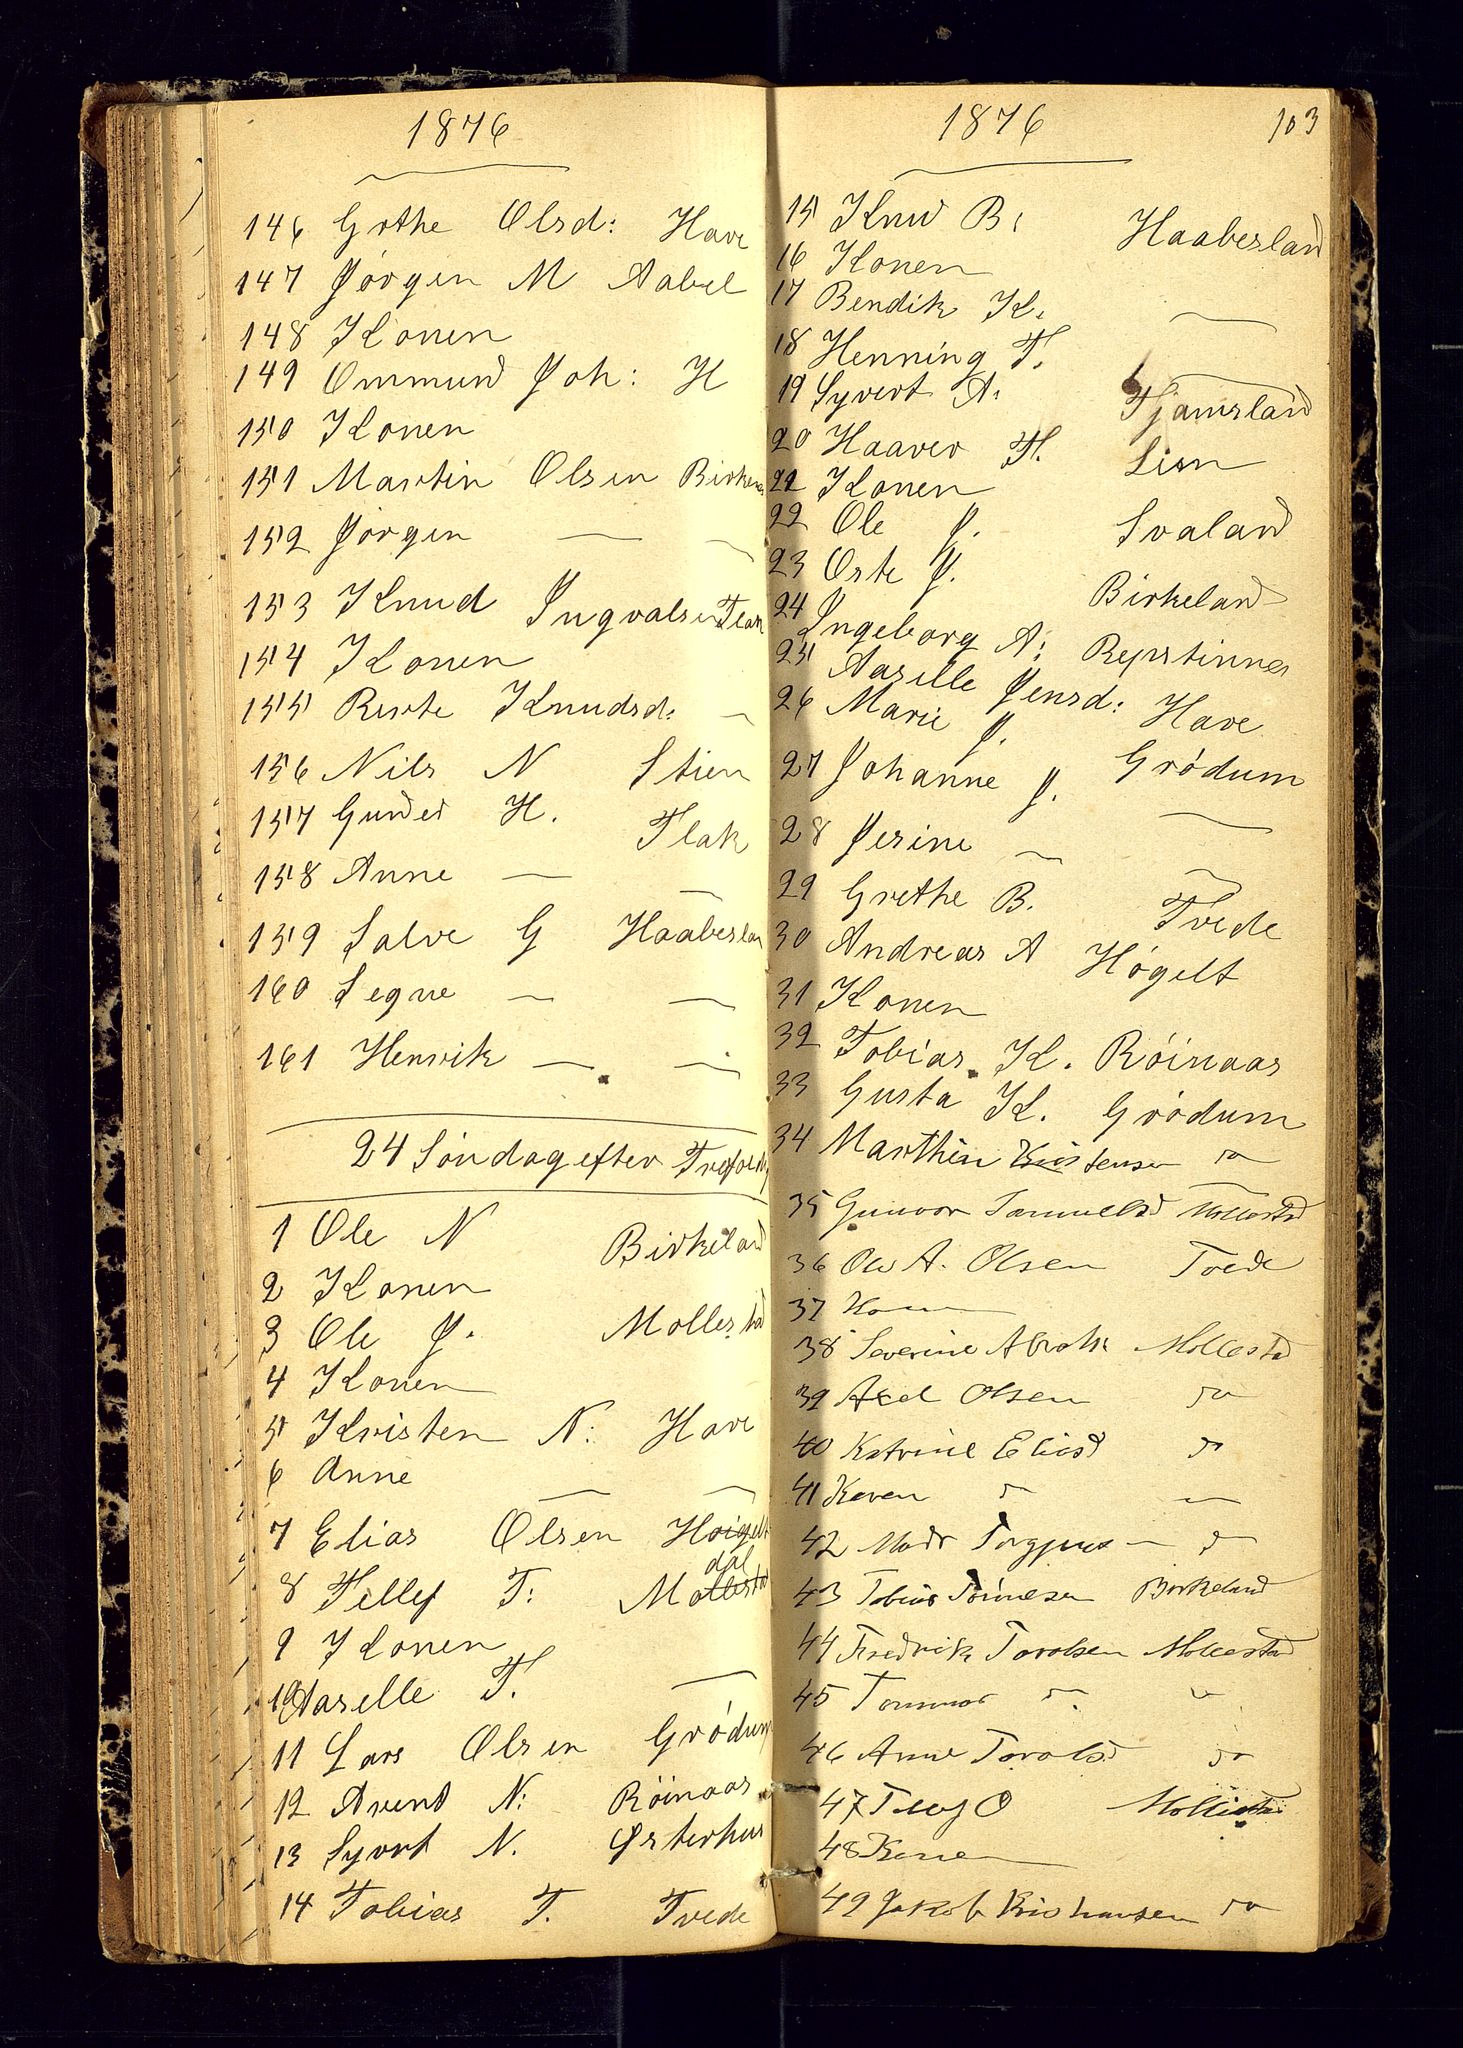 1876
146 Grthe Olsd: Have
147 Jörgen M Aabel
148 Konen
149 Ommund Joh: H
150 Konen
151 Martin Olsen Birkenes
152 Jörgen — —
153 Knud Ingvalsen Flak
154 Konen
155 Berte Knudsd: —
156 Nils N Stien
157 Gunder H. Flak
158 Anne — —
159 Salve G Haabeslan
160 Segne — —
161 Henrik — —
24 Söndag efter Trefoldig
1 Ole N Birkeland
2 Konen
3 Ole J. Mollestad
4 Konen
5 Kristen N: Have
6 Anne — —
7 Elias Olsen Høigelt
dal
8 Tellef T: Mollestad
9 Konen
10 Aaselle T. —
11 Lars Olsen Gródum
12 Avend N: Röinaas
13 Syvert N. Østerhus
14 Tobias T. Tvede
1876 103
15 Knud B: Haabesland
16 Konen
17 Bendik K. —
18 Henning T. —
19 Syvert A. Tjamsland
20 Haaver T. Lien
21 Konen
22 Ole J. Svaland
23 Oste J. Birkeland
24 Ingeborg A: Repstinnes
25 Aaselle Jensd: Have
26 Marie J. Gródum
27 Johanne J. —
28 Jesine — —
29 Grethe B. Tvede
30 Andreas A Högelt
31 Konen
32 Tobias K. Röinaas
33 Gusta K. Gródum
34 Marthin Kristensen do
35 Gunvor Samuelsd Mollestad
36 Ole A. Olsen Tvede
37 Konen
38 Severine Abrah: Mollestad
39 Axel Olsen do
40 Katrine Eliasd do
41 Karen do —
42 Mads Torgjus — do
43 Tobias Tönnesen Birkeland
44 Fredrik Torolsen Mollestad
45 Tommas do "
46 Anne Torolsd do
47 Tellef O Mollestad
48 Konen
49 Jakob Kristiansen do